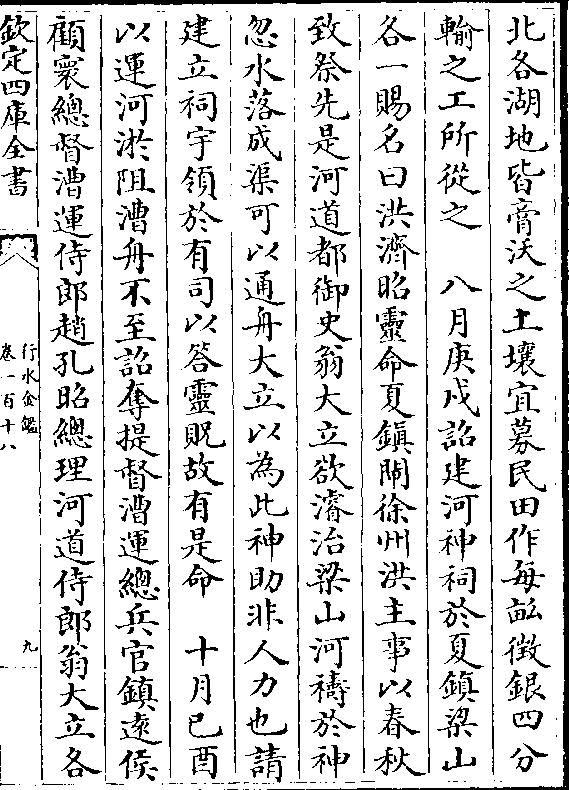 北各湖地皆膏沃之土壤宜募民田作每畝徵銀四分
輸之工所從之　八月庚戌詔建河神祠於夏鎮梁山
各一賜名曰洪濟昭靈命夏鎮閘徐州洪主事以春秋
致祭先是河道都御史翁大立欲濬治梁山河禱於神
忽水落成渠可以通舟大立以為此神助非人力也請
建立祠宇領於有司以答靈貺故有是命　十月己酉
以運河淤阻漕舟不至詔奪提督漕運總兵官鎮遠侯
顧寰總督漕運侍郎趙孔昭總理河道侍郎翁大立各
欽定四庫全書
行水金鑑
卷一百十八
九